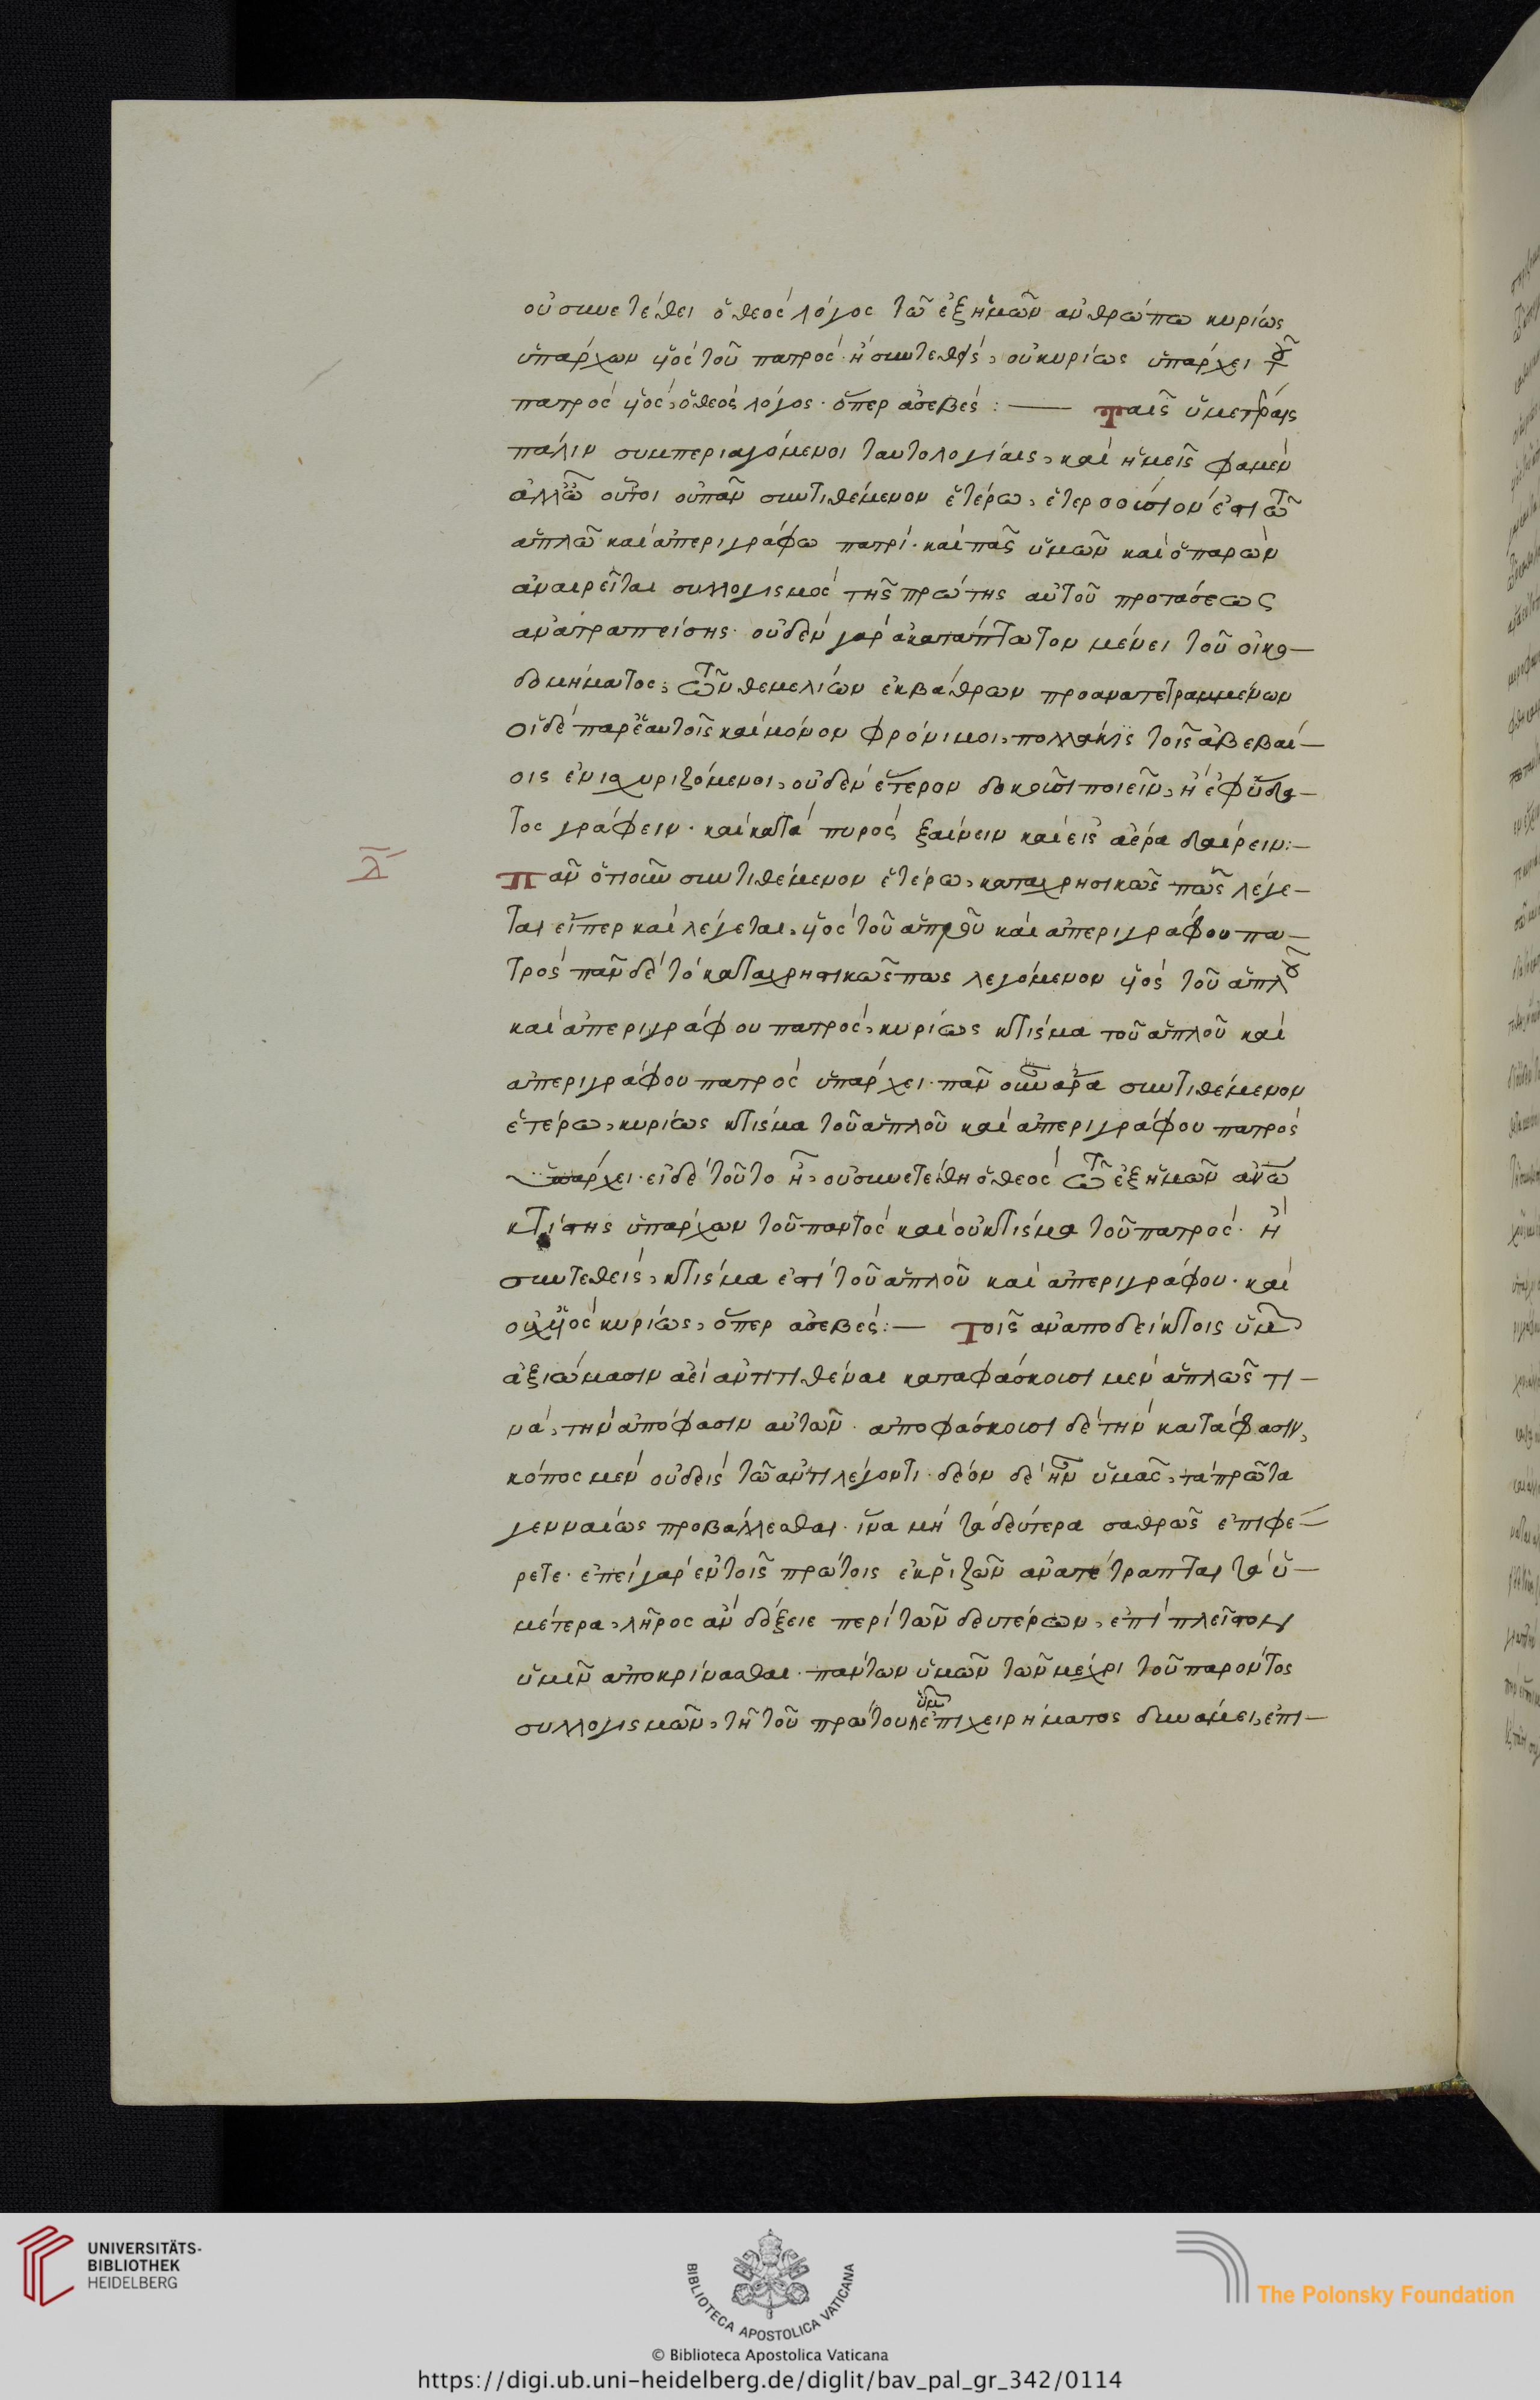 οὐ συνετέθει ὁ θεὸς λόγος τῶ ἐξ ἡμῶν ἀνθρώπω κυρίως
ὑπάρχων υἱὸς τοῦ πατρός· ἢ συντεθεὶς, οὐ κυρίως ὑπάρχει τοῦ
πατρὸς υἱὸς, ὁ θεὸς λόγος· ὅπερ ἀσεβές :— Ταῖς ὑμετέραις
πάλιν συμπεριαγόμενοι ταυτολογίαις, καὶ ἡμεῖς φαμὲν
ἀλλ' ὦ οὗτοι οὐ πᾶν συντιθέμενον ἑτέρω, ἑτεροούσιον ἐστὶ τῶ
ἁπλῶ καὶ ἀπεριγράφω πατρί· καὶ πᾶς ὑμῶν καὶ ὁ παρὼν
ἀναιρεῖται συλλογισμὸς τῆς πρώτης αὐτοῦ προτάσεως
ἀνατραπείσης· οὐδὲν γὰρ ἀκατάπτωτον μένει τοῦ οἰκο-
δομήματος, τῶν θεμελίων ἐκ βάθρων προανατετραμμένων
οἱ δὲ παρ' ἑαυτοῖς καὶ μόνον φρόνιμοι, πολλάκις τοῖς ἀβεβαί-
οις ἐνισχυριζόμενοι, οὐδὲν ἕτερον δοκοῦσι ποιεῖν, ἢ ἐφ' ὕδα-
τος γράφειν· καὶ κατὰ πυρὸς ξαίνειν καὶ εἰς ἀέρα δαίρειν:—
λ
Πᾶν ὁτιοῦν συντιθέμενον ἑτέρω, καταχρηστικῶς πῶς λέγε-
ται εἴπερ καὶ λέγεται, υἱὸς τοῦ ἁπλοῦ καὶ ἀπεριγράφου πα-
τρός πᾶν δὲ τὸ καταχρηστικῶς πως λεγόμενον υἱὸς τοῦ ἁπλοῦ
καὶ ἀπεριγράφου πατρὸς, κυρίως κτίσμα τοῦ ἁπλοῦ καὶ
ἀπεριγράφου πατρὸς ὑπάρχει· πᾶν οὖν ἄρα συντιθέμενον
ἑτέρω, κυρίως κτίσμα τοῦ ἁπλοῦ καὶ ἀπεριγράφου πατρὸς
ὑπάρχει· εἰ δὲ τοῦτο ἦ, οὐ συνετέθη ὁ θεὸς τῶ ἐξ ἡμῶν ἀνω
κτίστης ὑπάρχων τοῦ παντὸς καὶ οὐ κτίσμα τοῦ πατρός· ἢ
συντεθεὶς, κτίσμα ἐστὶ τοῦ ἁπλοῦ καὶ ἀπεριγράφου· καὶ
οὐχ υἱὸς κυρίως, ὅπερ ἀσεβές:— Τοῖς ἀναποδείκτοις ὑμῶν
ἀξιώμασιν ἀεὶ ἀντιτιθέναι καταφάσκουσι μὲν ἁπλῶς τι-
νὰ, τὴν ἀπόφασιν αὐτῶν· ἀποφάσκουσι δὲ τὴν κατάφασιν,
κόπος μὲν οὐδεὶς τῶ ἀντιλέγοντι· δέον δὲ ἦν ὑμᾶς, τὰ πρῶτα
γενναίως προβάλλεσθαι· ἵνα μὴ τὰ δεύτερα σαθρῶς ἐπιφέ-
ρετε· ἐπεὶ γὰρ ἐν τοῖς πρώτοις ἐκ ῥιζῶν ἀνατέτραπται τὰ ὑ-
μέτερα, λῆρος ἂν δόξειε περὶ τῶν δευτέρων, ἐπὶ πλεῖστον
ὑμῖν ἀποκρίνασθαι· πάντων ὑμῶν τῶν μέχρι τοῦ παρόντος
συλλογισμῶν, τῆ τοῦ πρώτου ὑμῶν ἐπιχειρήματος δυνάμει, ἐπι-
UNIVERSITÄTS-
BIBLIOTHEK
HEIDELBERG
BIBLIOTECA APOSTOLICA VATICANA
The Polonsky Foundation
© Biblioteca Apostolica Vaticana
https://digi.ub.uni-heidelberg.de/diglit/bav_pal_gr_342/0114